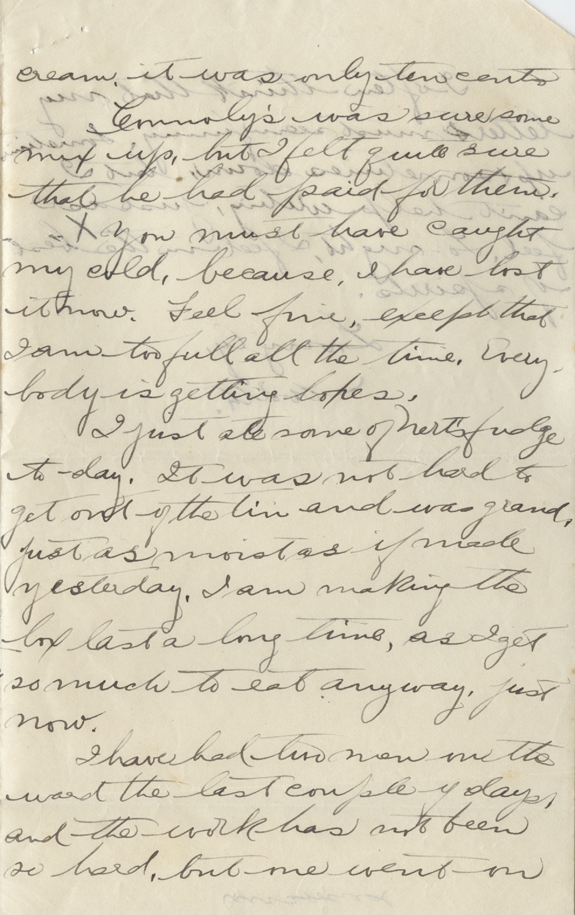 cream, it was only ten cents
Connoly's was sure some
mix up, but I felt quite sure
that he had paid for them.
X You must have caught
my cold, because, I have lost
it now. Feel fine, except that
I am too full all the time. Every-
body is getting boxes.
I just ate some of Nert's fudge
to-day. It was not hard to
get out of the tin and was grand,
just as moist as if made
yesterday. I am making the
box last a long time, as I get
so much to eat anyway, just
now.
I have had two men on the
ward the last couple of days,
and the work has not been
so hard, but one went on